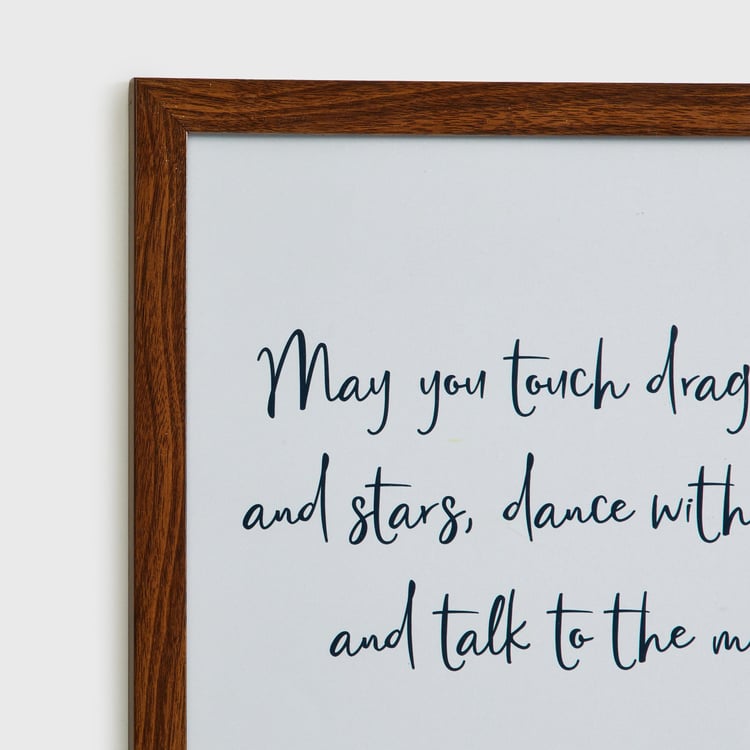 May you touch drag
and stars, dance with
and talk to the m